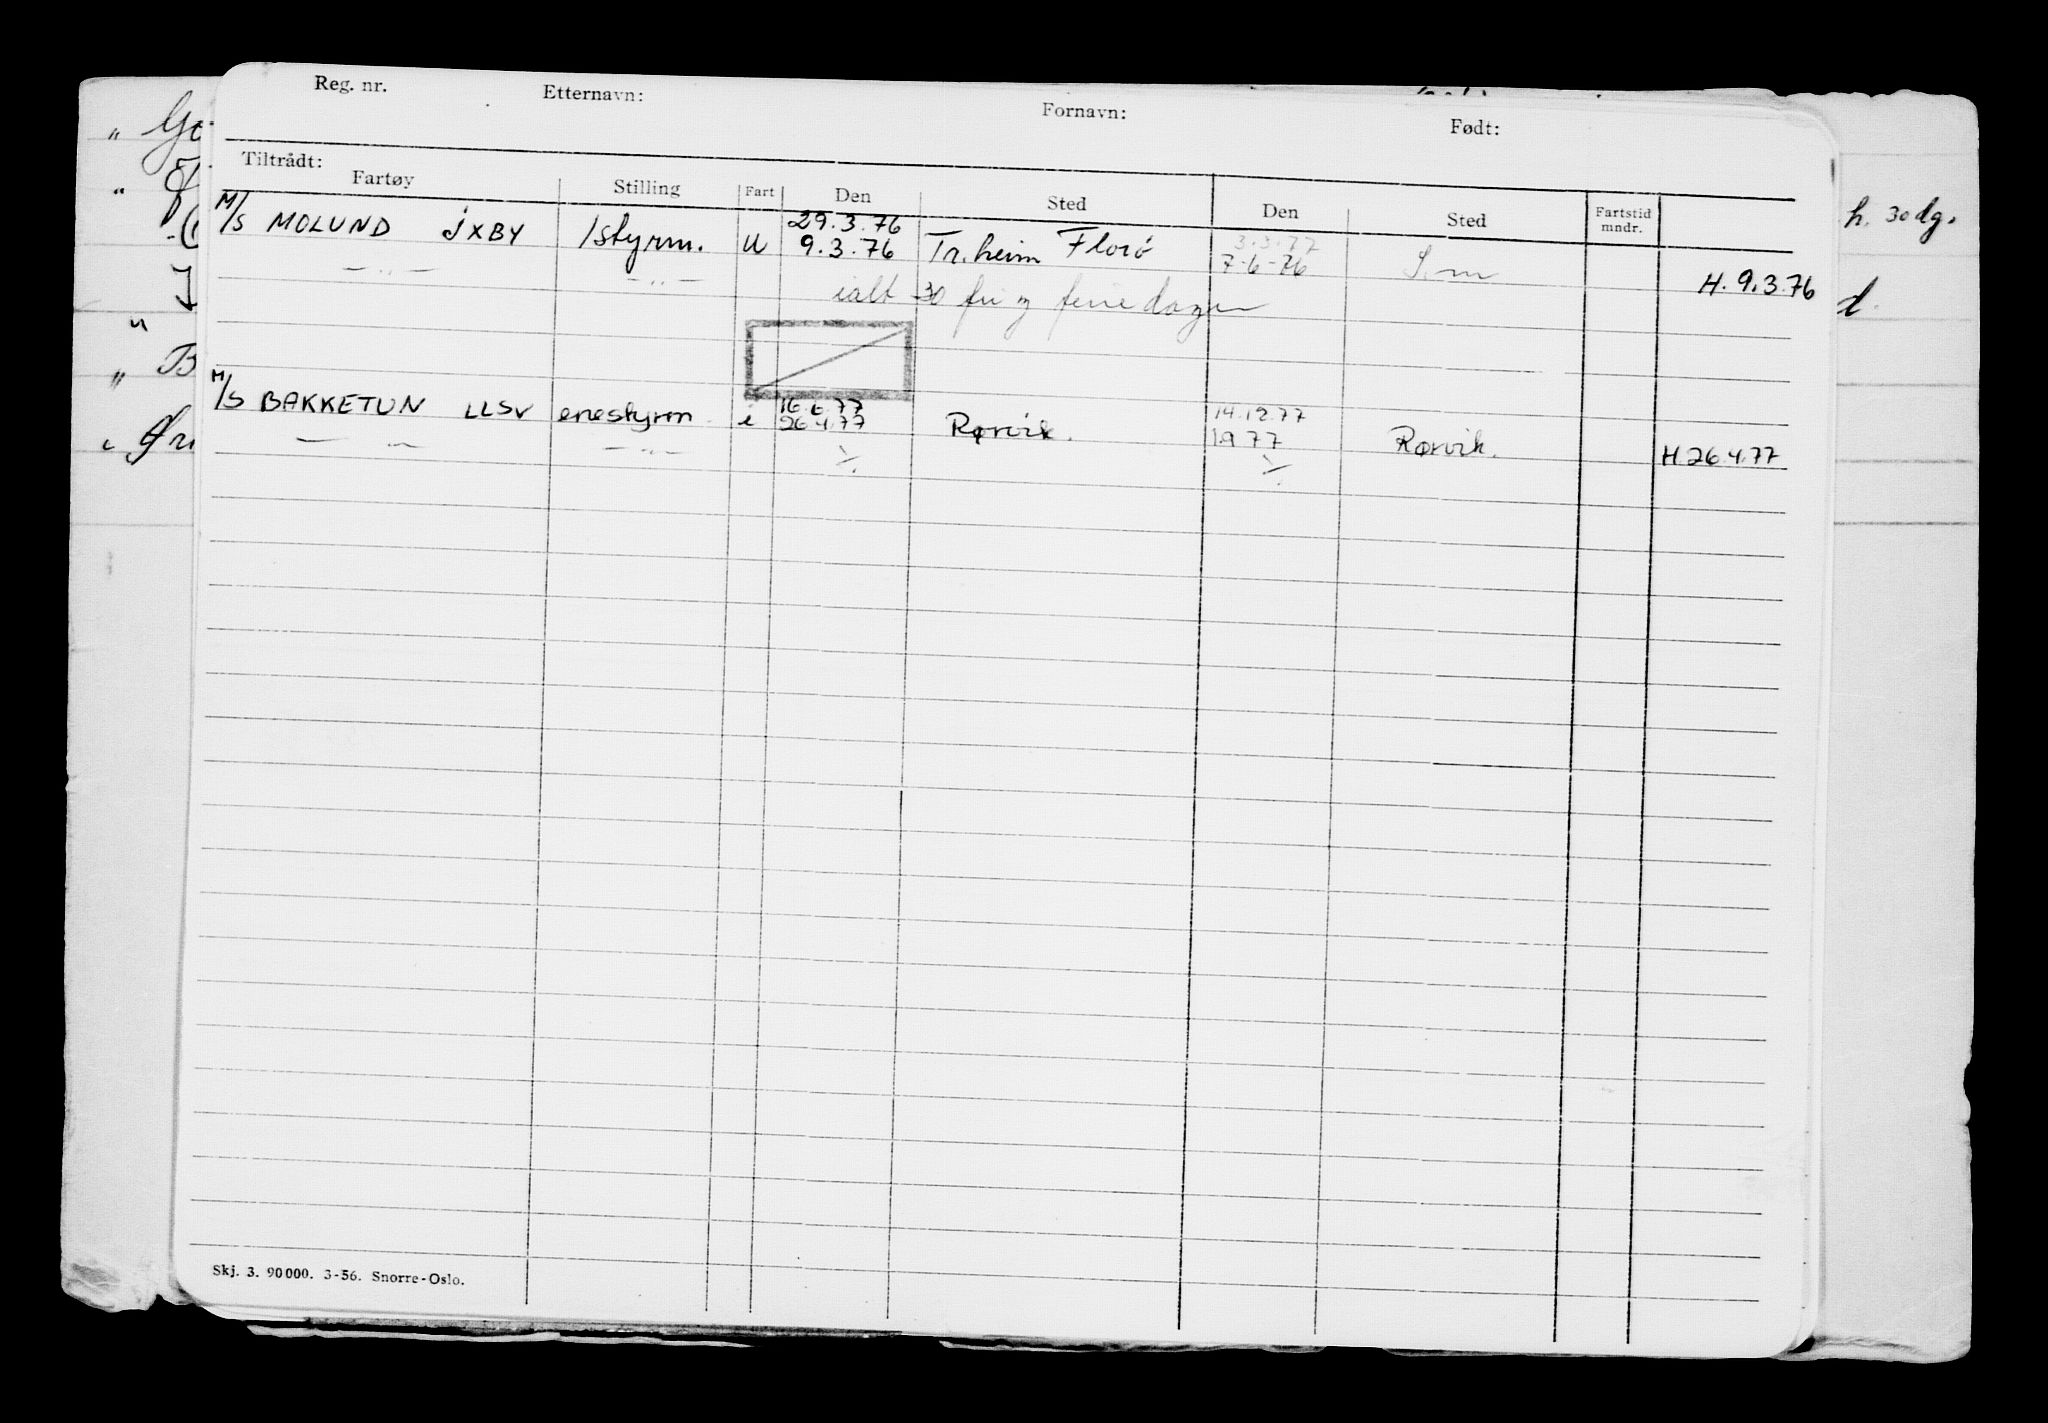 Reg. nr. Etternavn: Fornavn: Født:
Tiltrådt:
Fartøy Stilling Fart Den Sted Den Sted Fartstid mndr.
29.3.76 3.3.77
M/S MOLUND JXBY 1styrm. U 9.3.76 Tr.heim Florö 7-6-76 S.m H. 9.3.76
— „ — — „ —
ialt 30 fri og ferie dager
16.6.77 14.12.77
M/S BAKKETUN LLSV enestyrm. i 26.4.77 Rørvik. 1.9 77 Rørvik. H 26.4.77
— „ — „ —
Skj. 3. 90000. 3-56. Snorre-Oslo.
h. 30 dg.